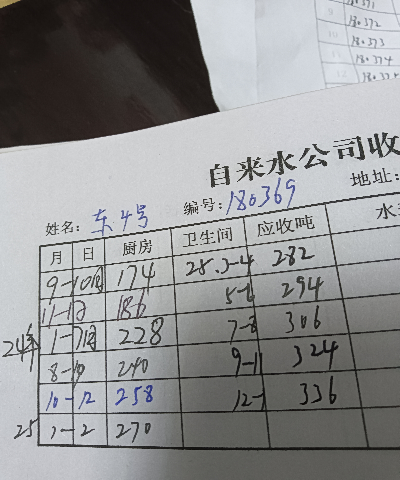 180371
9 180372
10 180373
11 180374
12 180375
自来水公司收
姓名: 东4号 编号: 180369 地址:
月 日 厨房 卫生间 应收吨 水
9-10月 174 25.3-4 282
11-12 186 5-6 294
24年 1-7月 228 7-8 306
8-10 240 9-11 324
10-12 258 12-1 336
25 1-2 270